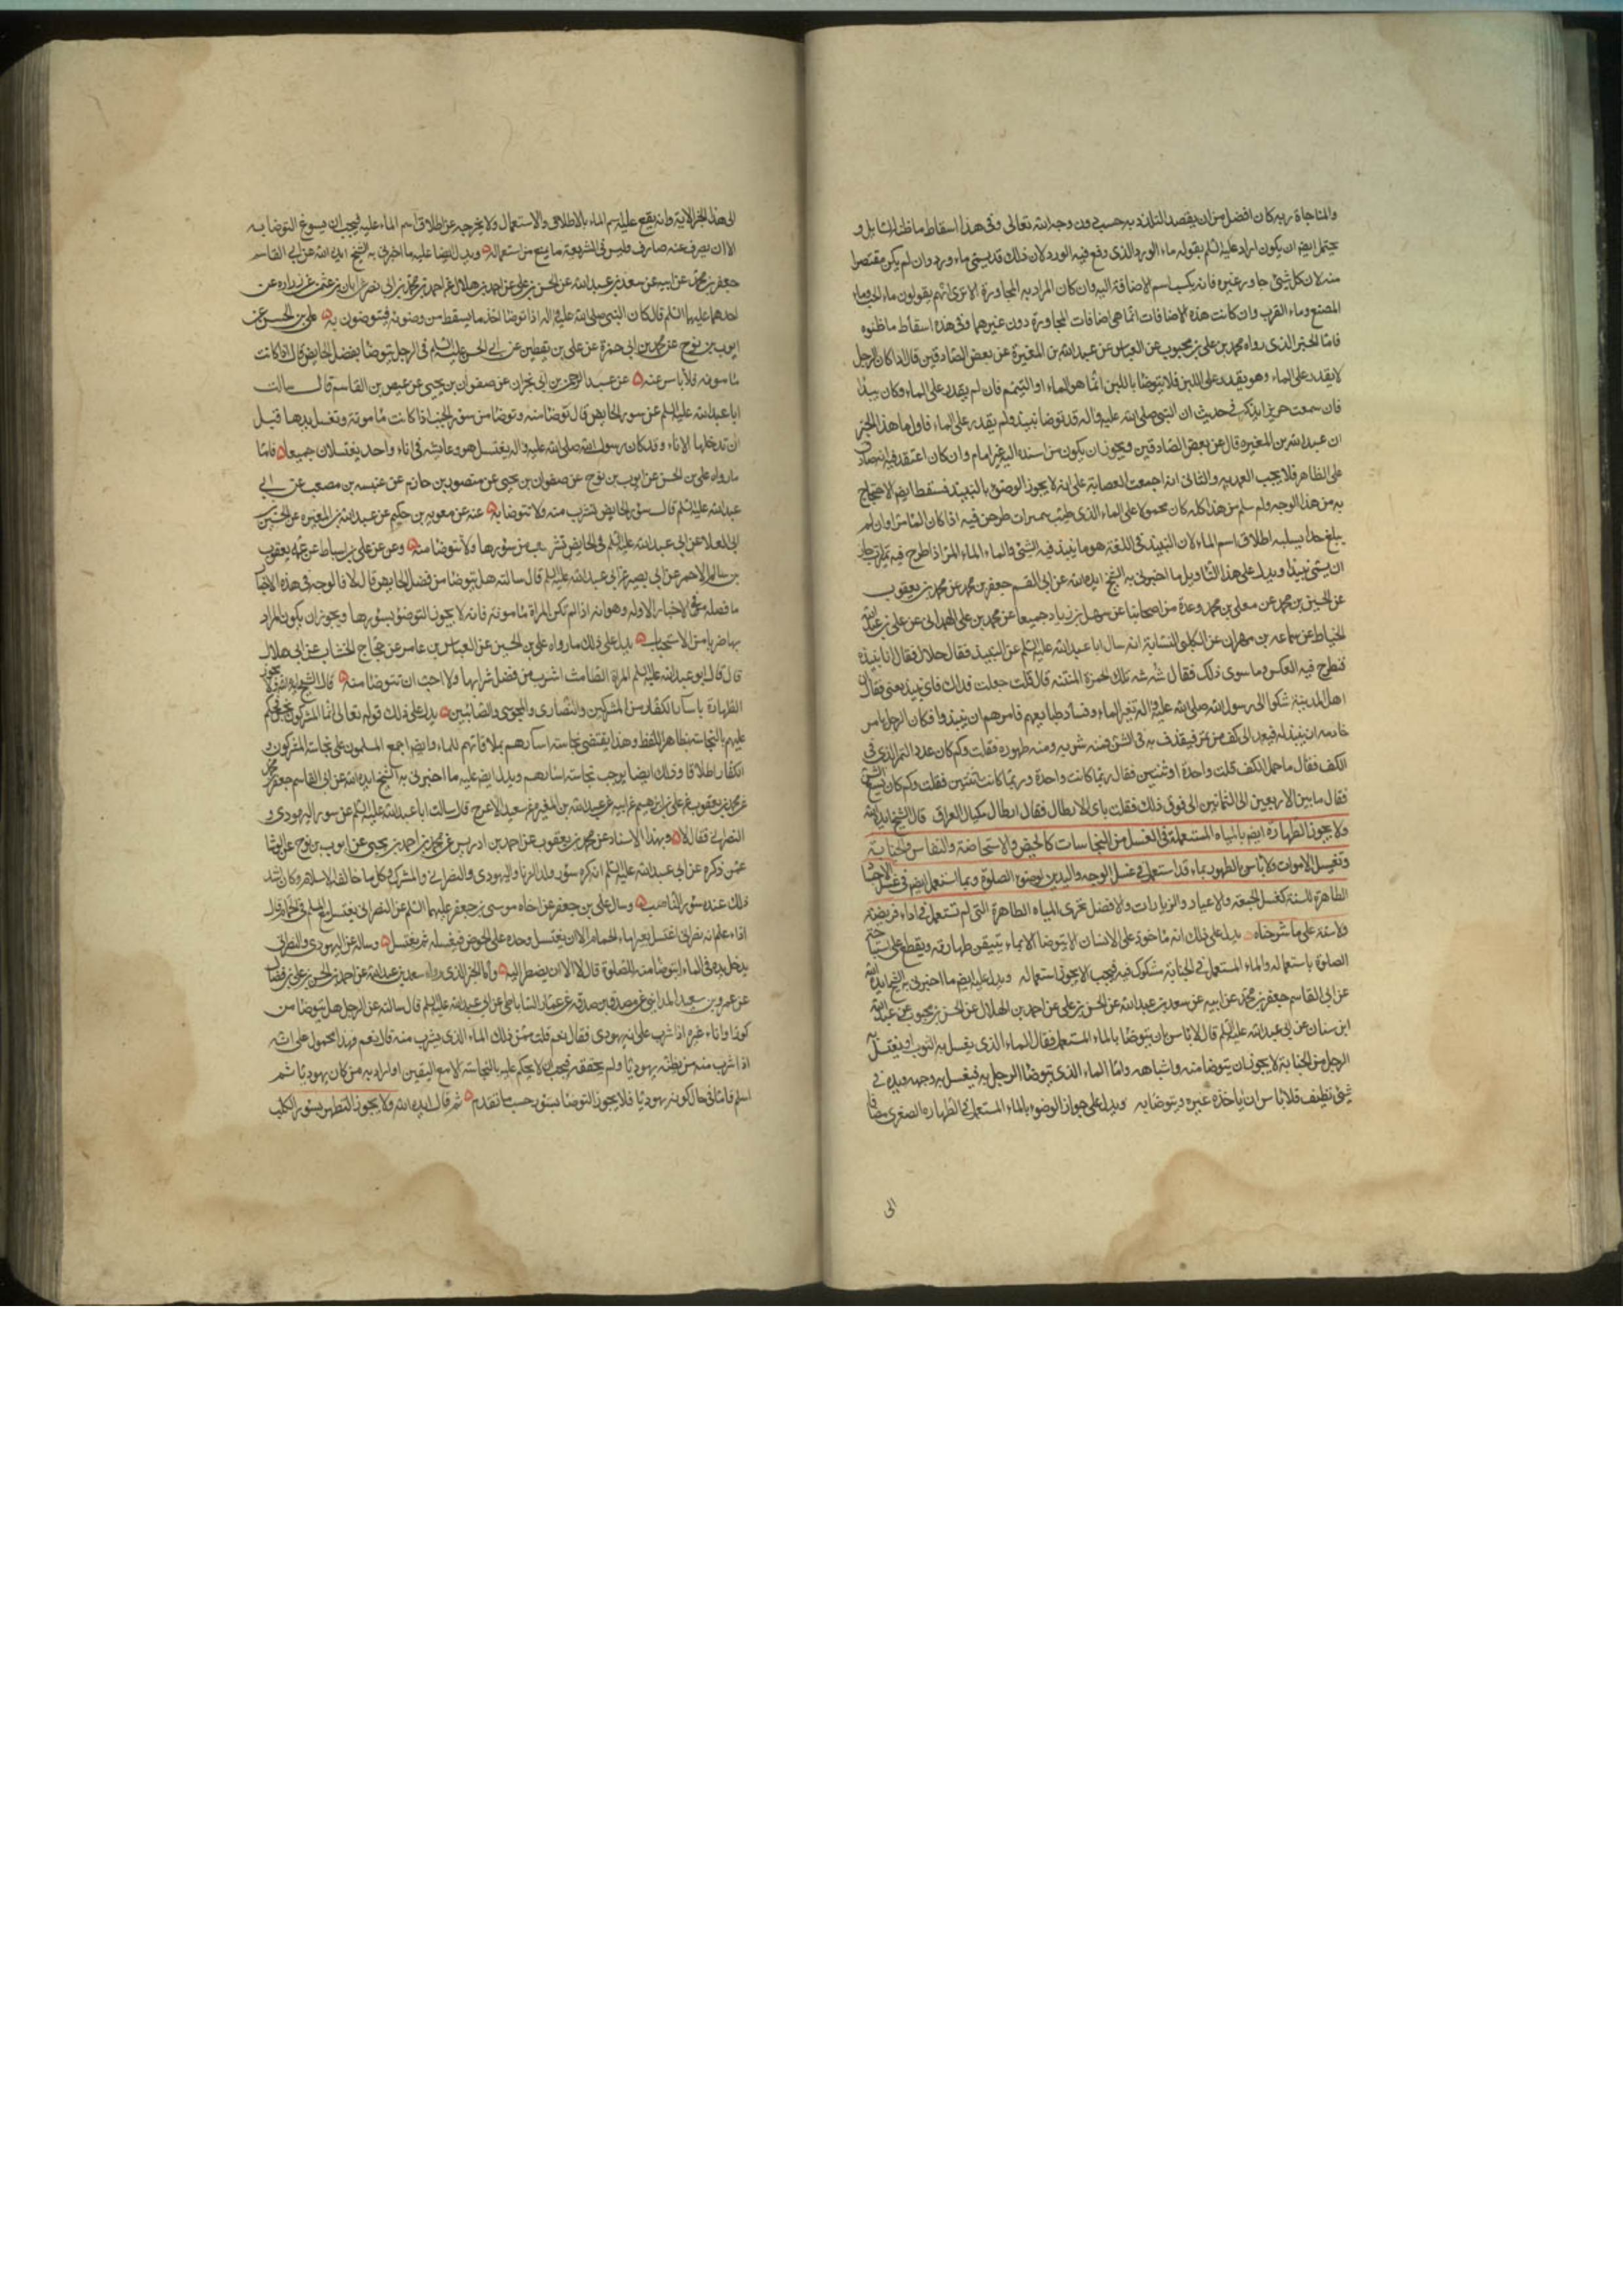 والمناجاة ربه كان افضل من ان يقصد التلذذ به حسب دون وجه الله تعالى وفى هذا اسقاط ما ظن السائل و
يحتمل ايضم ان يكون اراد عليه السلم بقوله ماء الورد الذى وقع فيه الورد لان ذلك قد يسمى ماء ورد وان لم يكن معتصرا
منه لان كل شئ جاور غيره فانه يكسب اسم الاضافة اليه وان كان المراد به المجاورة الا ترى انهم يقولون ماء الحب وماء
المصنع وماء القرب وان كانت هذه الاضافات انما هى اضافات المجاورة دون غيرها وفى هذه اسقاط ما ظنوه
فاما الخبر الذى رواه محمد بن على بن محبوب عن العباس عن عبدالله بن المغيرة عن بعض الصادقين قال اذا كان الرجل
لا يقدر على الماء وهو يقدر على اللبن فلا يتوضا باللبن انما هو الماء او التيمم فان لم يقدر على الماء وكان نبيذا
فان سمعت حريزا يذكر فى حديث ان النبى صلى الله عليه واله قد توضا بنبيذ ولم يقدر على الماء فاول ما هذا الخبر
ان عبدالله بن المغيره قال عن بعض الصادقين ويجوز ان يكون من اسنده اليه غير امام وان كان اعتقد فيه انه صادق
على الظاهر فلا يجب العمل به والثانى انه اجمعت العصابة على انه لا يجوز الوضوء بالنبيذ فسقط ايضم الاحتجاج
به من هذا الوجه ولم سلم من هذا كله كان محمولا على الماء الذى طيب بتميرات طرحن فيه اذا كان الماء مرا وان لم
يبلغ حدا يسلبه اطلاق اسم الماء لان النبيذ فى اللغة هو ما ينبذ فيه الشئ والماء المر اذا طرح فيه تميرات جاز
ان يسمى نبيذا ويدل على هذا التاويل ما اخبرنى به الشيخ ايده الله عن ابى القسم جعفر بن محمد عن محمد بن يعقوب
عن الحسين بن محمد عن معلى بن محمد وعدة من اصحابنا عن سهل بن زياد جميعا عن محمد بن على الهمدانى عن على بن عبدالله
الخياط عن سماعه بن مهران عن الكلبى النسابة انه سال ابا عبدالله عليه السلم عن النبيذ فقال حلال فقال انا ننبذه
فنطرح فيه العكر وما سوى ذلك فقال شه شه تلك الخمرة المنتنه قال قلت جعلت فداك فاى نبيذ يعنى فقال ان
اهل المدينة شكوا الى رسول الله صلى الله عليه واله تغير الماء وفساد طبايعهم فامرهم ان ينبذوا فكان الرجل يامر
خادمه ان ينبذ له فيعمد الى كف من تمر فيقذف به فى الشن فمنه شربه ومنه طهوره فقلت وكم كان عدد التمر الذى فى
الكف فقال ما حمل الكف قلت واحدة او ثنتين فقال ربما كانت واحدة وربما كانت ثنتين فقلت وكم كان يسع الشن
فقال ما بين الاربعين الى الثمانين الى فوق ذلك فقلت باى الارطال فقال ارطال مكيال العراق قال الشيخ ايده الله
ولا يجوز الطهارة ايضم بالمياه المستعملة فى الغسل من النجاسات كالحيض والاستحاضة والنفاس والجنابة
وتغسيل الاموات ولا باس بالطهور بماء قد استعمل فى غسل الوجه واليدين لوضوء الصلوة وبما استعمل ايضم فى غسل الاجساد
الطاهرة للسنة كغسل الجمعة والاعياد والزيارات والافضل تحرى المياه الطاهرة التى لم تستعمل فى اداء فريضة
ولا سنة على ما شرحناه يدل على ذلك انه ماخوذ على الانسان الا يتوضا الا بماء يتيقن طهارته ويقطع على استباحة
الصلوة باستعماله والماء المستعمل فى الجنابة مشكوك فيه فيجب الا يجوز استعماله ويدل عليه ايضم ما اخبرنى به الشيخ ايده الله
عن ابى القاسم جعفر بن محمد عن ابيه عن سعد بن عبدالله عن الحسن بن على عن احمد بن الهلال عن الحسن بن محبوب عن عبدالله
ابن سنان عن ابى عبدالله عليه السلم قال لا باس بان يتوضا بالماء المستعمل فقال الماء الذى يغسل به الثوب او يغتسل به
الرجل من الجنابة لا يجوز ان يتوضا منه واشباهه واما الماء الذى يتوضا الرجل به فيغسل به وجهه ويده فى
شئ نظيف فلا باس ان ياخذه غيره ويتوضا به ويدل على جواز الوضوء بالماء المستعمل فى الطهاره الصغرى مضافا
الى
الى هذا الخبر الاية وانه يقع عليه اسم الماء بالاطلاق والاستعمال ولا يخرجه عن اطلاق اسم الماء عليه فيجب ان يسوغ التوضا به
الا ان يصرف عنه صارف وليس فى الشريعة ما يمنع من استعماله ويدل ايضا عليه ما اخبرنى به الشيخ ايده الله عن ابى القاسم
جعفر بن محمد عن ابيه عن سعد بن عبدالله عن الحسن بن على عن احمد بن هلال عن احمد بن محمد بن ابى نصر عن ابان بن عثمن عن زراره عن
احدهما عليهما السلم قال كان النبى صلى الله عليه واله اذا توضا اخذ ما يسقط من وضوئه فيتوضون به على بن الحسن عن
ايوب بن نوح عن محمد بن ابى حمزة عن على بن يقطين عن ابى الحسن عليه السلم فى الرجل يتوضا بفضل الحايض قال اذا كانت
مامونه فلا باس عنه عن عبد الرحمن بن ابى نجران عن صفوان بن يحيى عن عيص بن القاسم قال سالت
ابا عبدالله عليه السلم عن سور الحايض قال توضا منه وتوضا من سور الجنب اذا كانت مامونة وتغسل يديها قبل
ان تدخلها الاناء وقد كان رسول الله صلى الله عليه واله يغتسل هو وعايشه فى اناء واحد يغتسلان جميعا فاما
ما رواه على بن الحسن عن ايوب بن نوح عن صفوان بن يحيى عن منصور بن حازم عن عنبسه بن مصعب عن ابى
عبدالله عليه السلم قال سور الحايض تشرب منه ولا تتوضا به عنه عن معويه بن حكيم عن عبدالله بن المغيره عن الحسين بن
ابى العلا عن ابى عبدالله عليه السلم فى الحايض تشرب من سورها ولا تتوضا منه وعن على بن اسباط عن عمه يعقوب
بن سالم الاحمر عن ابى بصير عن ابى عبدالله عليه السلم قال سالته هل يتوضا من فضل الحايض قال لا فالوجه فى هذه الاخبار
ما فصله فى الاخبار الاوله وهو انه اذا لم تكن المراة مامونة فانه لا يجوز التوضؤ بسورها ويجوز ان يكون المراد
بها ضربا من الاستحباب يدل على ذلك ما رواه على بن الحسن عن العباس بن عامر عن حجاج الخشاب عن ابى هلال
قال قال ابو عبدالله عليه السلم المراة الطامث اشرب من فضل شرابها ولا احب ان تتوضا منه قال الشيخ ايده الله ولا يجوز
الطهارة باسار الكفار من المشركين والنصارى والمجوس والصابئين يدل على ذلك قوله تعالى انما المشركون نجس فحكم
عليهم بالنجاسة بظاهر اللفظ وهذا يقتضى نجاسة اسارهم بملاقاتهم للماء وايضم اجمع المسلمون على نجاسة المشركين و
الكفار اطلاقا وذلك ايضا يوجب نجاسة اسارهم ويدل ايضم عليه ما اخبرنى به الشيخ ايده الله عن ابى القاسم جعفر بن محمد
عن محمد بن يعقوب عن على بن ابرهيم عن ابيه عن عبدالله بن المغيرة عن سعيد الاعرج قال سالت ابا عبدالله عليه السلم عن سور اليهودى و
النصرانى فقال لا وبهذا الاسناد عن محمد بن يعقوب عن احمد بن ادريس عن محمد بن احمد بن يحيى عن ايوب بن نوح عن الوشا
عمن ذكره عن ابى عبدالله عليه السلم انه كره سؤر ولد الزنا واليهودى والنصرانى والمشرك وكل ما خالف الاسلام وكان اشد
ذلك عنده سؤر الناصب وسال على بن جعفر عن اخاه موسى بن جعفر عليهما السلم عن النصرانى يغتسل مع المسلم فى الحمام قال
اذا علم انه نصرانى اغتسل بغير ماء الحمام الا ان يغتسل وحده على الحوض فيغسله ثم يغتسل وساله عن اليهودى والنصرانى
يدخل يده فى الماء ايتوضا منه للصلوة قال لا الا ان يضطر اليه واما الخبر الذى رواه سعد بن عبدالله عن احمد بن الحسن بن على بن فضال
عن عمرو بن سعيد المداينى عن مصدق بن صدقه عن عمار الساباطى عن ابى عبدالله عليه السلم قال سالته عن الرجل هل يتوضا من
كوز او اناء غيره اذا شرب على انه يهودى فقال نعم قلت من ذلك الماء الذى يشرب منه قال نعم فهذا محمول على انه
اذا شرب منه من يظنه يهوديا ولم يحققه فيجب ان لا يحكم عليه بالنجاسة الا مع اليقين او اراد به من كان يهوديا ثم
اسلم فاما فى حال كونه يهوديا فلا يجوز التوضا بسؤره حسب ما تقدم ثم قال ايده الله ولا يجوز التطهر بسؤر الكلب